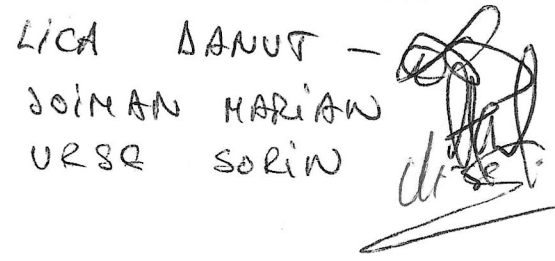 LICA DANUT -
JOIMAN MARIAN
URSE SORIN